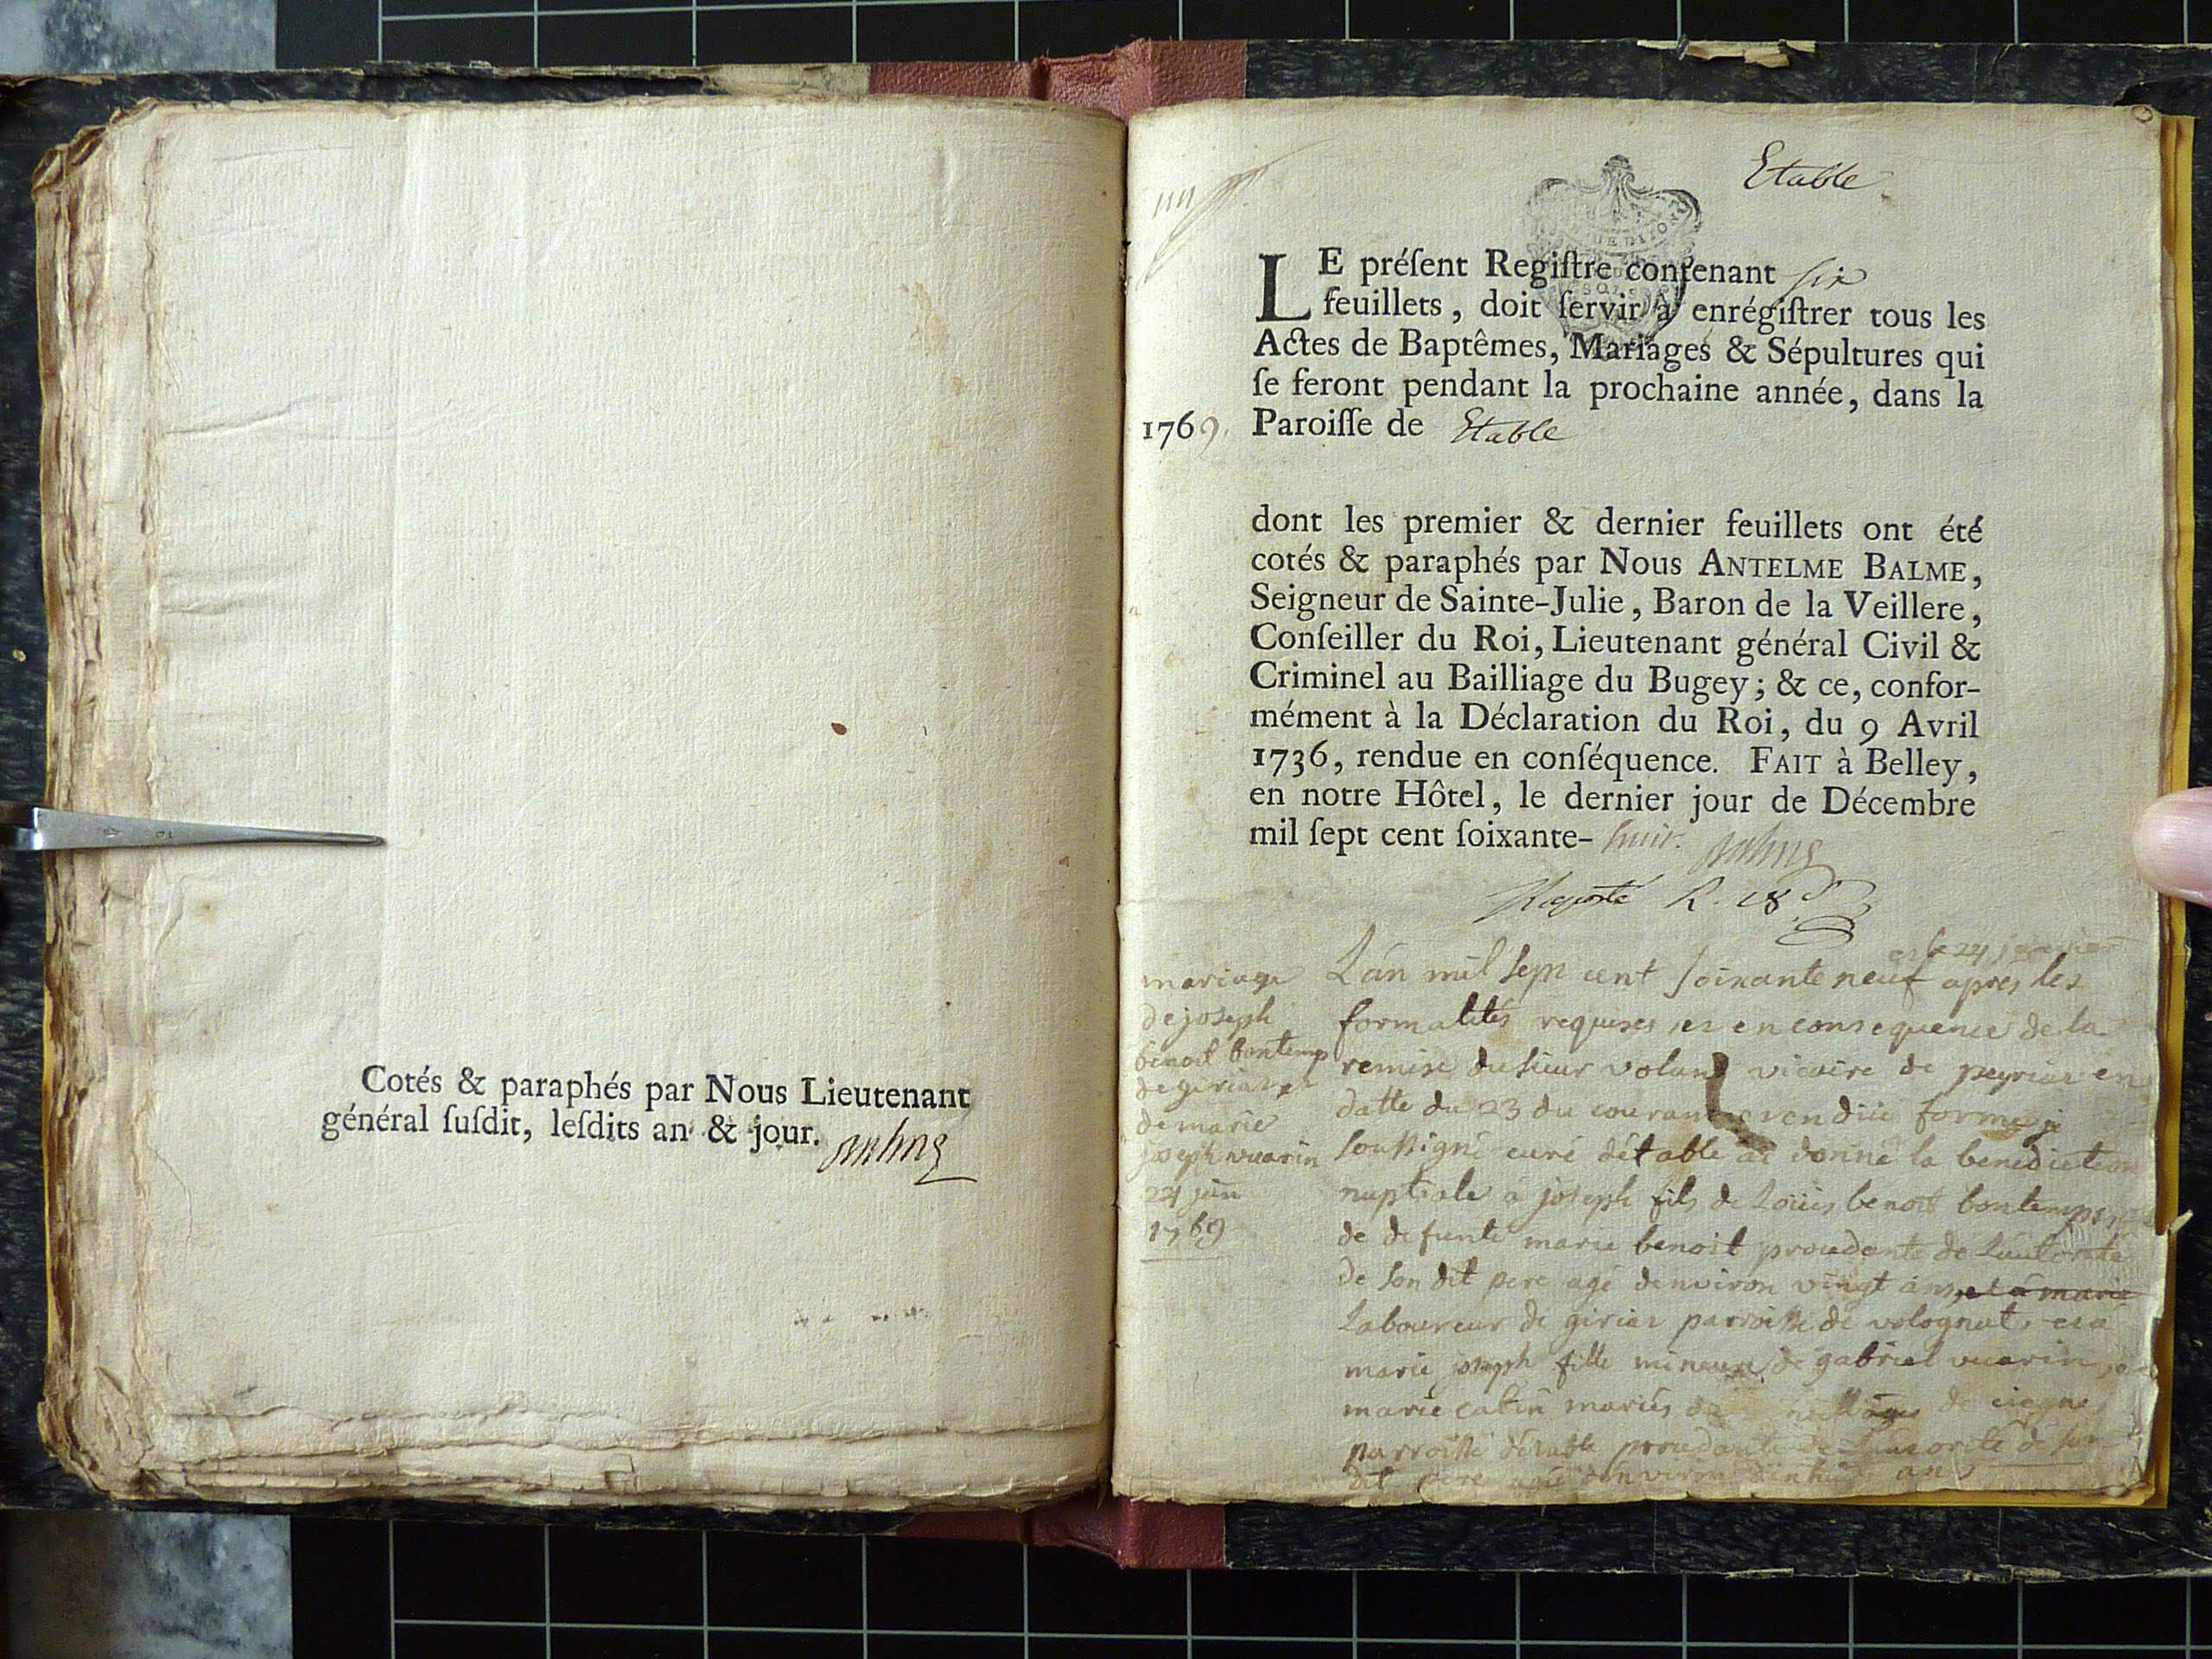 Cotés & paraphés par Nous Lieutenant
général ſuſdit, leſdits an & jour.
Etable
LE préſent Regiſtre contenant six
feuillets, doit ſervir à enrégiſtrer tous les
Actes de Baptêmes, Mariages & Sépultures qui
ſe feront pendant la prochaine année, dans la
1769. Paroiſſe de Etable
dont les premier & dernier feuillets ont été
cotés & paraphés par Nous ANTELME BALME,
Seigneur de Sainte-Julie, Baron de la Veillere,
Conſeiller du Roi, Lieutenant général Civil &
Criminel au Bailliage du Bugey; & ce, confor-
mément à la Déclaration du Roi, du 9 Avril
1736, rendue en conſéquence. FAIT à Belley,
en notre Hôtel, le dernier jour de Décembre
mil ſept cent ſoixante- huit.
R. 18
mariage
de joseph
benoit bontemp
de giriat et
de marie
joseph vuarin
24 jan
1769
et le 24 janvier
L'an mil sept cent soixante neuf apres les
formalités requises et en consequence de la
remise du sieur volan vicaire de peyriat en
datte du 23 du courant en düe forme je
soussigné curé détable ai donné la benediction
nuptiale a joseph fils de Loüis benoit bontemps
de defunte marie benoit procedante de Lautorité
de son dit pere agé denviron vingt ans et a marie
Laboureur de giriat parroisse de volognat, et a
marie joseph fille mineure de gabriel vuarin
marie catin mariés de
parroisse détable procedante de Lautorité de son
dit pere agée denviron ans